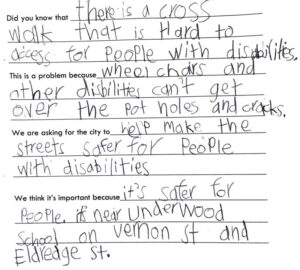 Did you know that there is a cross
walk that is Hard to
access for PeoPle with disabilities.
This is a problem because wheel chairs and
other disbilities can't get
over the Pot holes and cracks.
We are asking for the city to help make the
streets safer for PeoPle
with disabilities
We think it's important because it's safer for
PeoPle. it's near Underwood
School on vernon st and
Eldredge st.